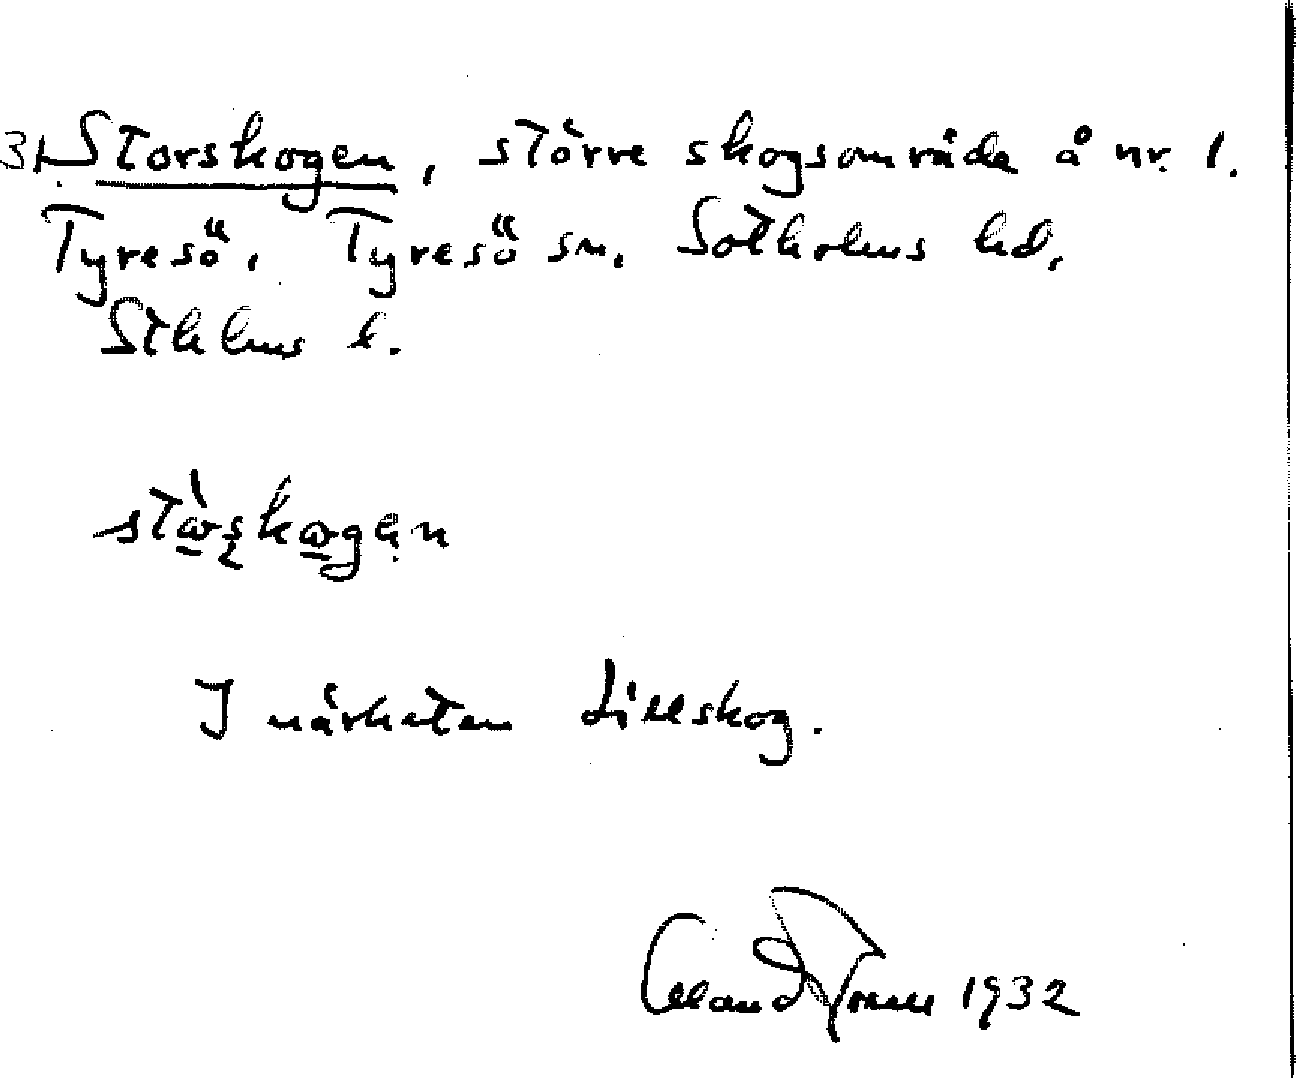 31. Storskogen, större skogsområde å nr. 1.
Tyresö, Tyresö sn, Sotholms hd,
Sthlms l.
I närheten Lillskog.
1932